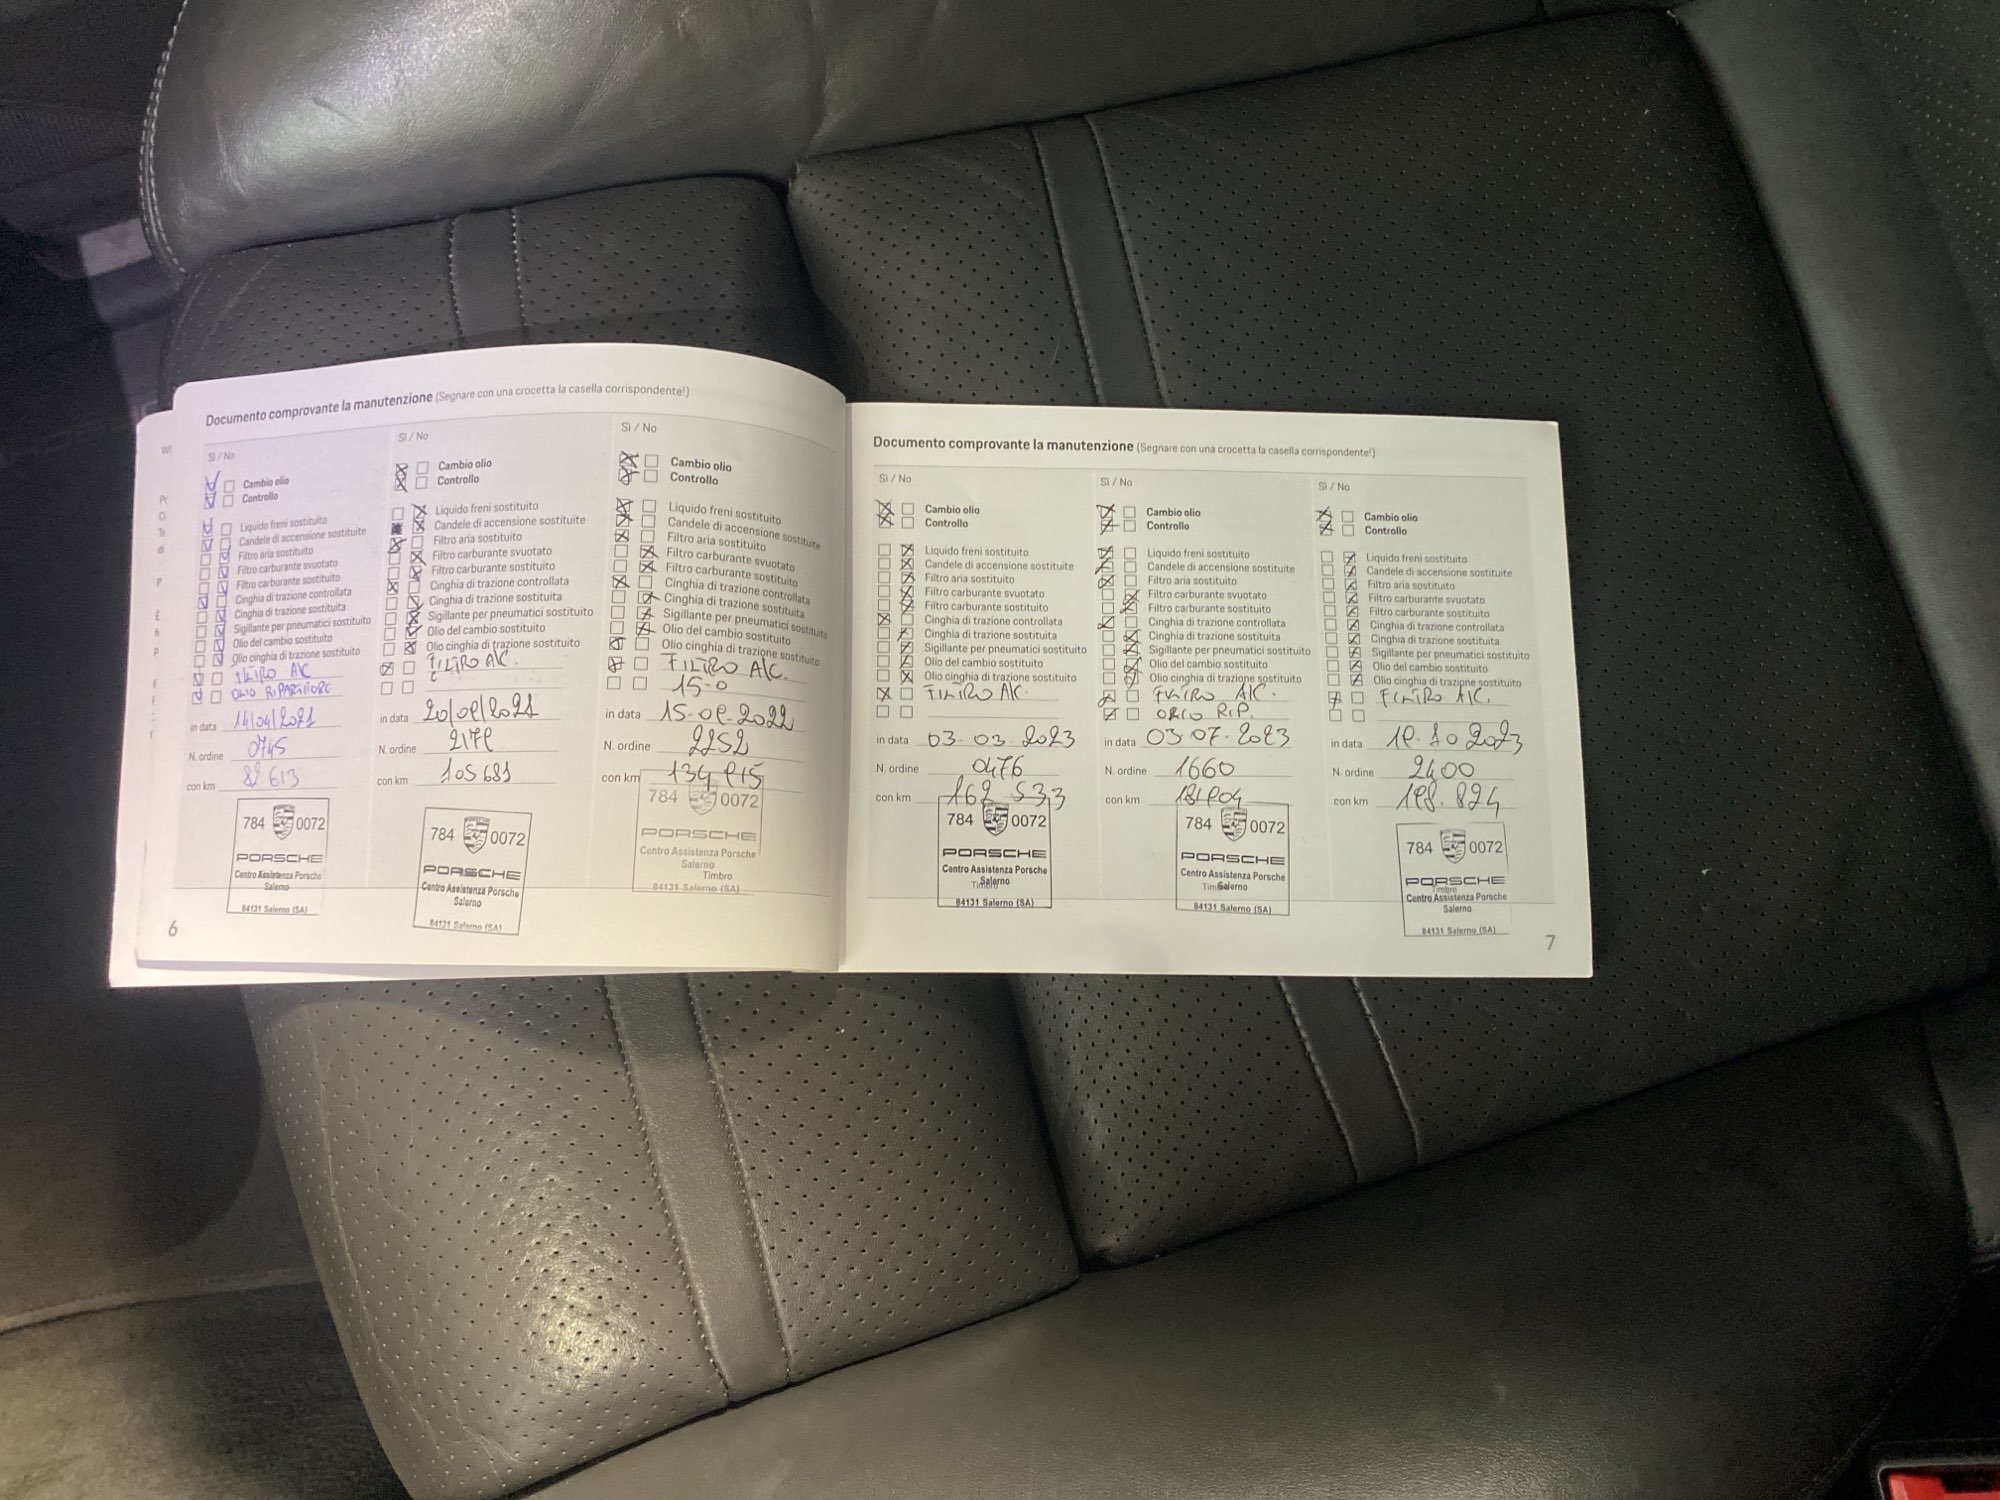 Documento comprovante la manutenzione (Segnare con una crocetta la casella corrispondente!)
Sì / No
Cambio olio
Controllo
Liquido freni sostituito
Candele di accensione sostituite
Filtro aria sostituito
Filtro carburante svuotato
Filtro carburante sostituito
Cinghia di trazione controllata
Cinghia di trazione sostituita
Sigillante per pneumatici sostituito
Olio del cambio sostituito
Olio cinghia di trazione sostituito
FILTRO A/C
OLIO RIPARTITORE
in data 14/04/2021
N. ordine 0745
con km 82613
784 0072
PORSCHE
Centro Assistenza Porsche
Salerno
84131 Salerno (SA)
6
Sì / No
Cambio olio
Controllo
Liquido freni sostituito
Candele di accensione sostituite
Filtro aria sostituito
Filtro carburante svuotato
Filtro carburante sostituito
Cinghia di trazione controllata
Cinghia di trazione sostituita
Sigillante per pneumatici sostituito
Olio del cambio sostituito
Olio cinghia di trazione sostituito
FILTRO A/C.
in data 20/09/2021
N. ordine 2179
con km 105681
784 0072
PORSCHE
Centro Assistenza Porsche
Salerno
84131 Salerno (SA)
Sì / No
Cambio olio
Controllo
Liquido freni sostituito
Candele di accensione sostituite
Filtro aria sostituito
Filtro carburante svuotato
Filtro carburante sostituito
Cinghia di trazione controllata
Cinghia di trazione sostituita
Sigillante per pneumatici sostituito
Olio del cambio sostituito
Olio cinghia di trazione sostituito
FILTRO A/C.
15-0
in data 15-09-2022
N. ordine 2252
con km 134915
784 0072
PORSCHE
Centro Assistenza Porsche
Salerno
Timbro
84131 Salerno (SA)
Documento comprovante la manutenzione (Segnare con una crocetta la casella corrispondente!)
Sì / No
Cambio olio
Controllo
Liquido freni sostituito
Candele di accensione sostituite
Filtro aria sostituito
Filtro carburante svuotato
Filtro carburante sostituito
Cinghia di trazione controllata
Cinghia di trazione sostituita
Sigillante per pneumatici sostituito
Olio del cambio sostituito
Olio cinghia di trazione sostituito
FILTRO A/C.
in data 03.03.2023
N. ordine 0476
con km 162 533
784 0072
PORSCHE
Centro Assistenza Porsche
Salerno
Timbro
84131 Salerno (SA)
Sì / No
Cambio olio
Controllo
Liquido freni sostituito
Candele di accensione sostituite
Filtro aria sostituito
Filtro carburante svuotato
Filtro carburante sostituito
Cinghia di trazione controllata
Cinghia di trazione sostituita
Sigillante per pneumatici sostituito
Olio del cambio sostituito
Olio cinghia di trazione sostituito
FILTRO A/C.
OLIO RIP.
in data 03.07.2023
N. ordine 1660
con km 181904
784 0072
PORSCHE
Centro Assistenza Porsche
Timbro Salerno
84131 Salerno (SA)
Sì / No
Cambio olio
Controllo
Liquido freni sostituito
Candele di accensione sostituite
Filtro aria sostituito
Filtro carburante svuotato
Filtro carburante sostituito
Cinghia di trazione controllata
Cinghia di trazione sostituita
Sigillante per pneumatici sostituito
Olio del cambio sostituito
Olio cinghia di trazione sostituito
FILTRO A/C.
in data 19.10.2023
N. ordine 2400
con km 198.824
784 0072
PORSCHE
Timbro
Centro Assistenza Porsche
Salerno
84131 Salerno (SA)
7